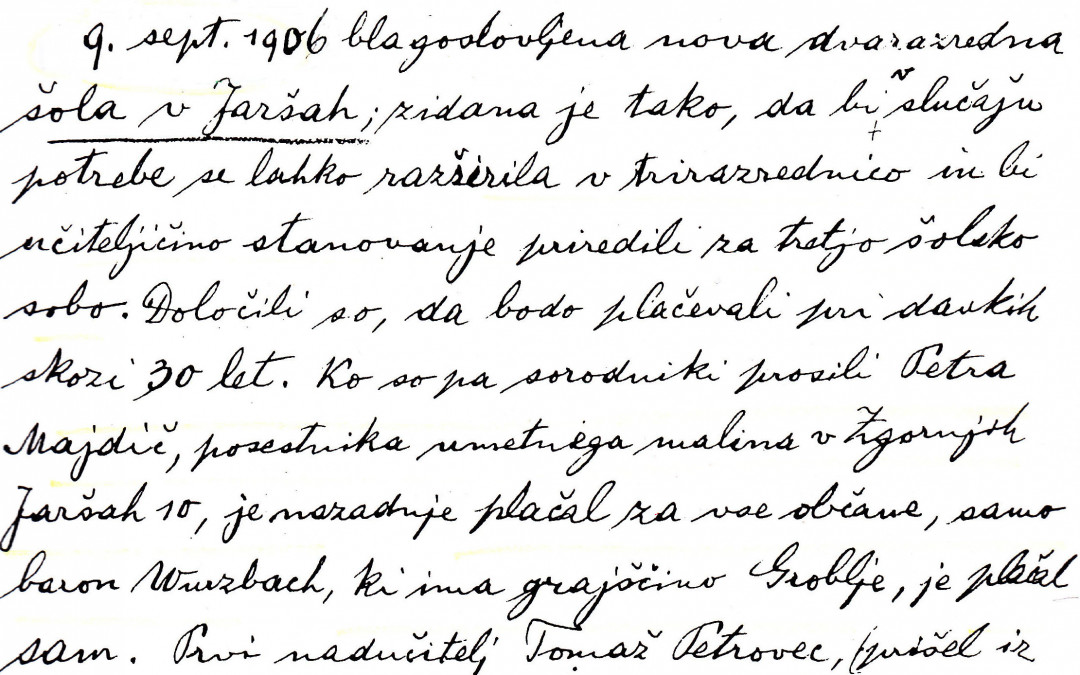 9. sept. 1906 blagoslovljena nova dvarazredna
šola v Jaršah; zidana je tako, da bi v slučaju
potrebe se lahko razširila v trirazrednico in bi
učiteljičino stanovanje priredili za tretjo šolsko
sobo. Določili so, da bodo plačevali pri davkih
skozi 30 let. Ko so pa sorodniki prosili Petra
Majdič, posestnika umetnega malina v Zgornjih
Jaršah 10, je nazadnje plačal za vse občane, samo
baron Wurzbach, ki ima grajščino Groblje, je plačal
sam. Prvi nadučitelj Tomaž Petrovec, (prišel iz